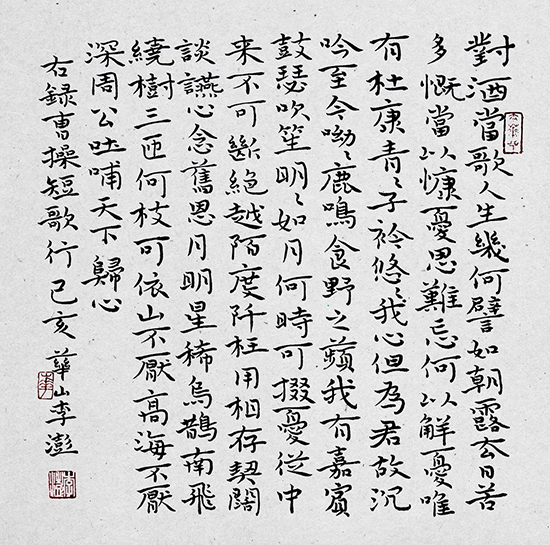 對酒當歌人生幾何譬如朝露去日苦
多慨當以慷憂思難忘何以解憂唯
有杜康青〻子衿悠〻我心但為君故沉
吟至今呦〻鹿鳴食野之蘋我有嘉賓
鼓瑟吹笙明〻如月何時可掇憂從中
来不可斷絕越陌度阡枉用相存契闊
談讌心念舊恩月明星稀烏鵲南飛
繞樹三匝何枝可依山不厭高海不厭
深周公吐哺天下歸心
右録曹操短歌行己亥華山李澎